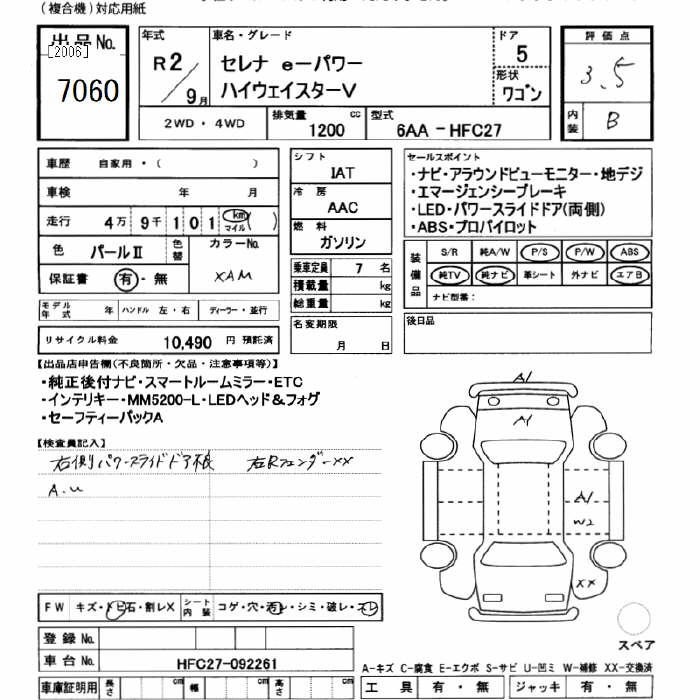 (複合機)対応用紙
出品No.
[2006]
7060
年式
R2/9月
車名・グレード
セレナ e-パワー
ハイウェイスターV
ドア
5
形状
ワゴン
評価点
3.5
内装
B
2WD・4WD
排気量
1200 cc
型式
6AA-HFC27
車歴 自家用・( )
車検 年 月
走行 4万 9千 1 0 1 km マイル ( )
色 パールⅡ 色替
カラーNo. XAM
保証書 有・無
モデル年式 年 ハンドル 左・右 ディーラー・並行
リサイクル料金 10,490 円 預託済
シフト
IAT
冷房
AAC
燃料
ガソリン
乗車定員 7 名
積載量 kg
総重量 kg
名変期限
月 日
セールスポイント
・ナビ・アラウンドビューモニター・地デジ
・エマージェンシーブレーキ
・LED・パワースライドドア(両側)
・ABS・プロパイロット
装備品
S/R 純A/W P/S P/W ABS
純TV 純ナビ 革シート 外ナビ エアB
ナビ型番:
後日品
【出品店申告欄(不良箇所・欠品・注意事項等)】
・純正後付ナビ・スマートルームミラー・ETC
・インテリキー・MM5200-L・LEDヘッド&フォグ
・セーフティーパックA
【検査員記入】
右側パワースライドドア不良 右Rフェンダーxx
A.u
A1
A1
A1
W2
XX
スペア
FW キズ・トビ石・割レX シート内装 コゲ・穴・汚レ・シミ・破レ・スレ
登録No.
車台No. HFC27-092261
車庫証明用 長さ cm 幅 cm 高さ cm
A-キズ C-腐食 E-エクボ S-サビ U-凹ミ W-補修 XX-交換済
工具 有・無 ジャッキ 有・無